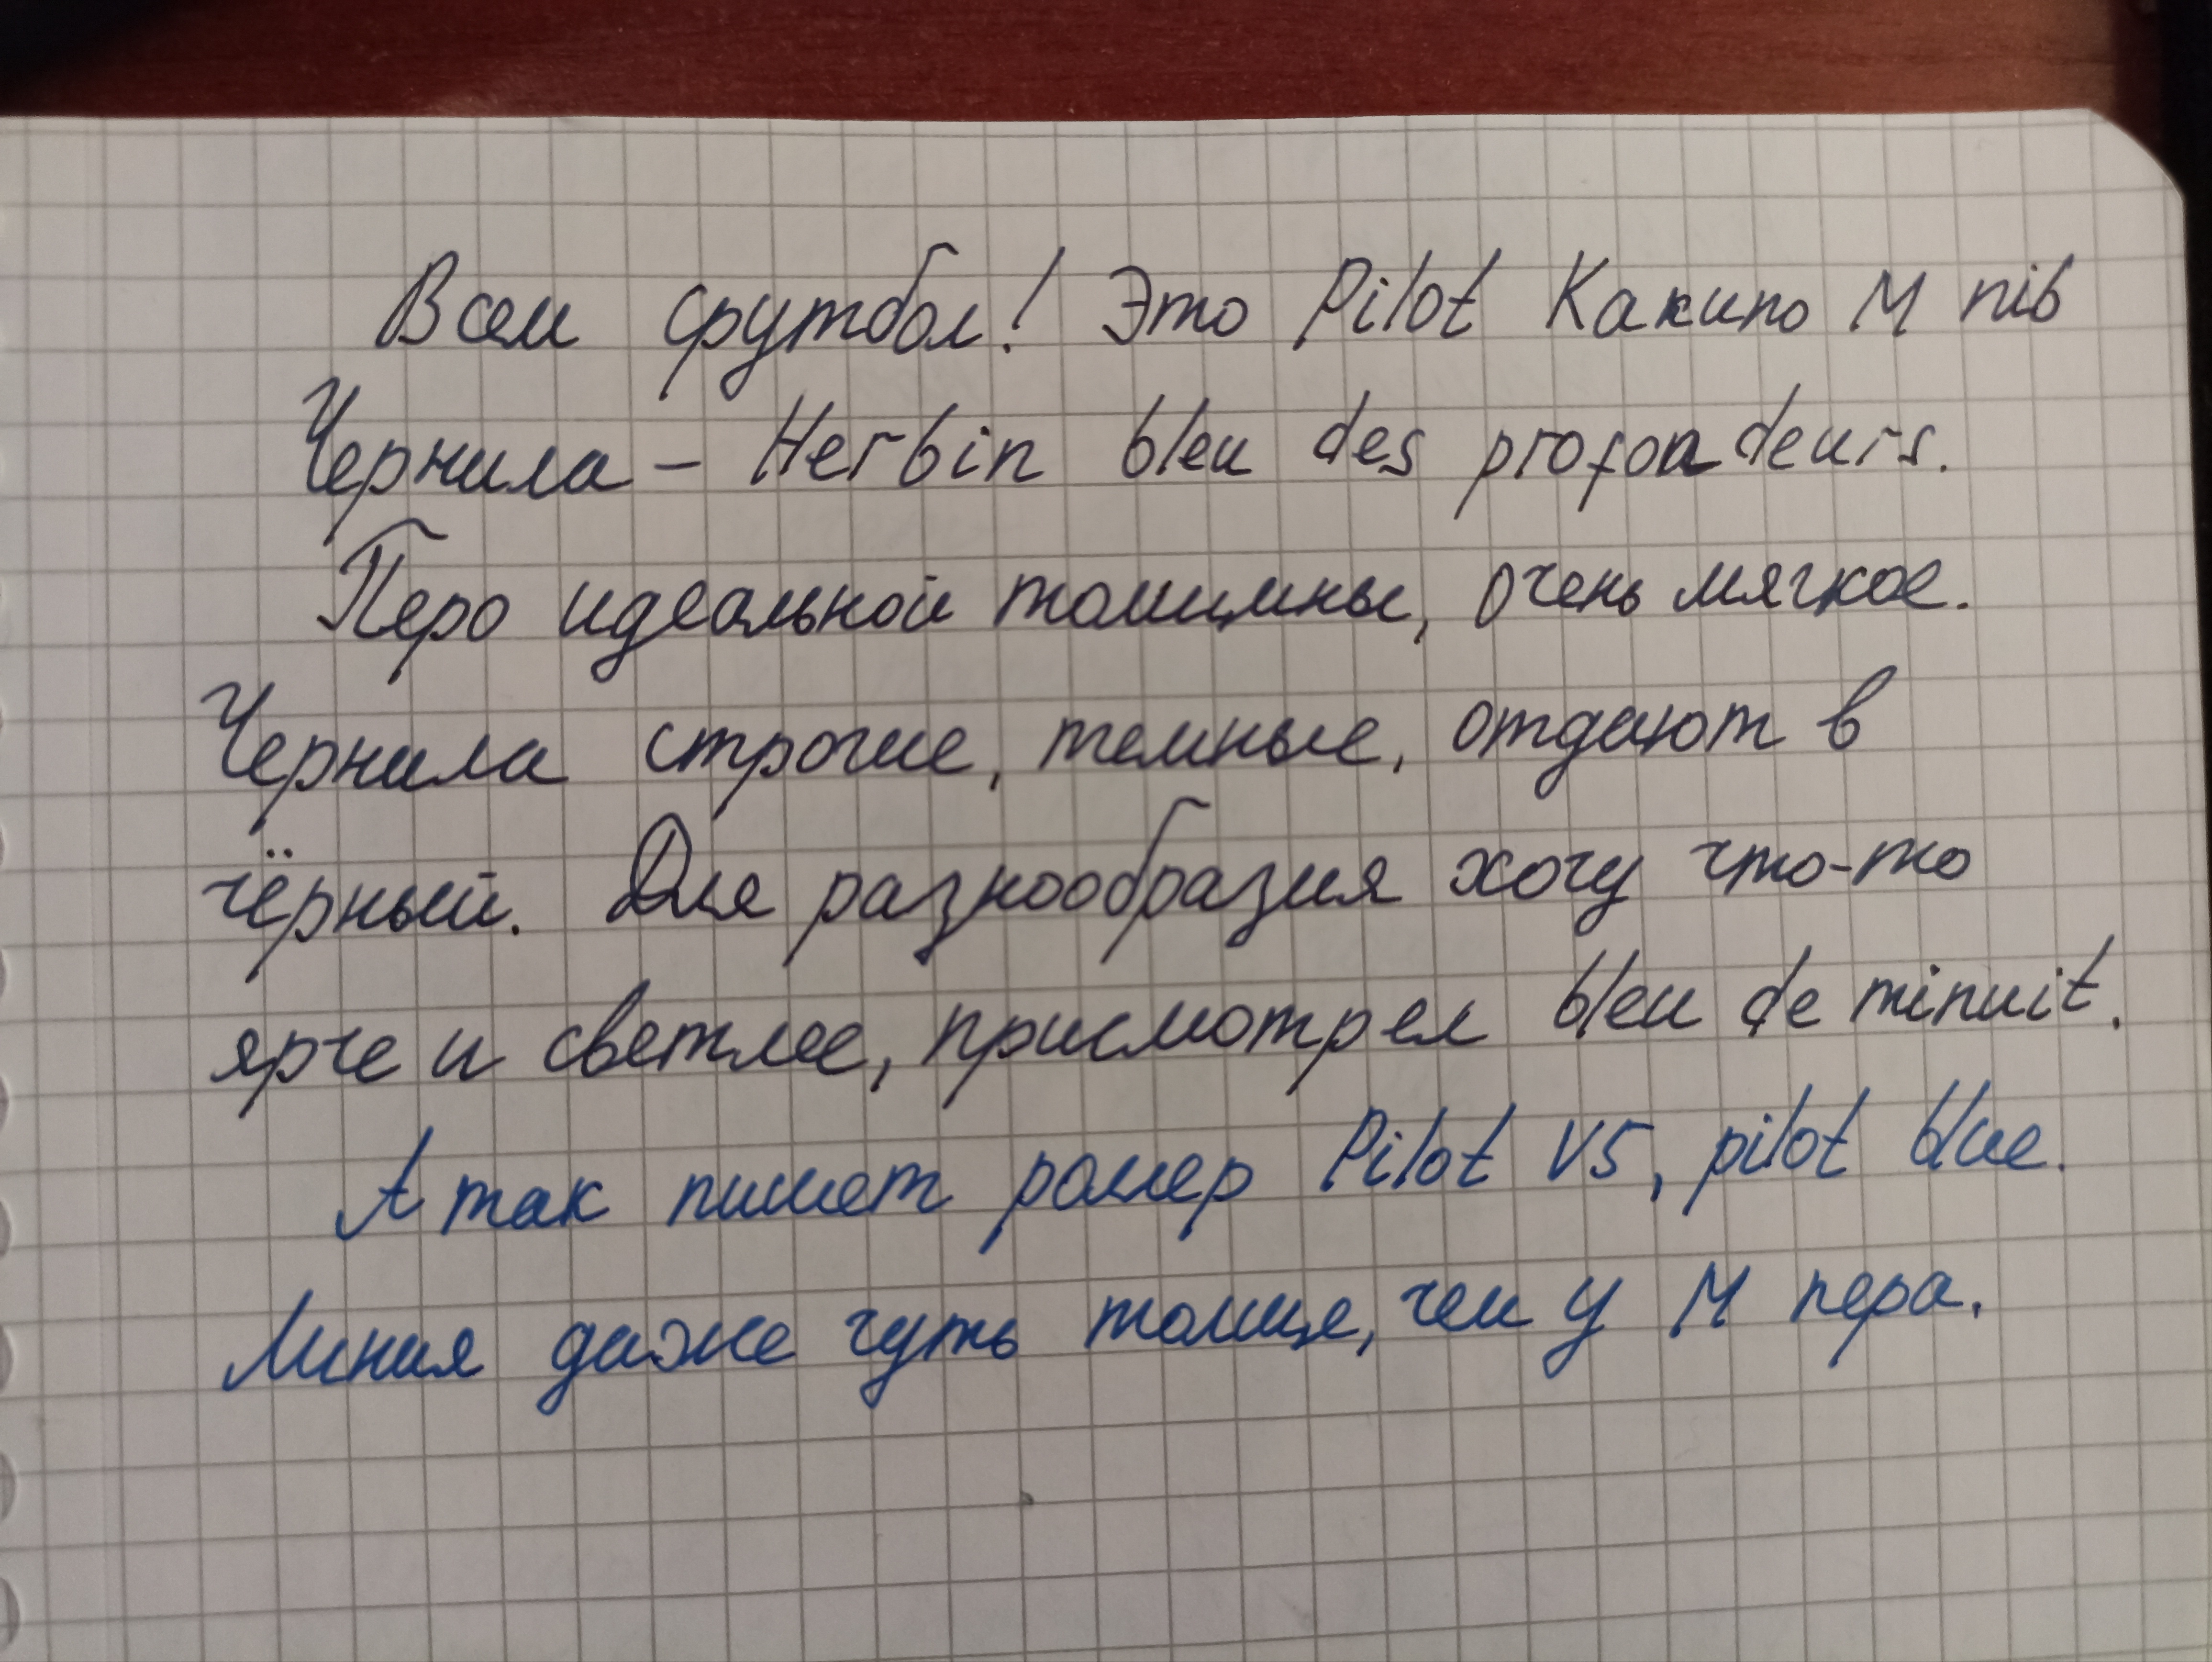 Всем футбол! Это Pilot Какипо M nib
Чернила – Herbin bleu des profondeurs.
Перо идеальной толщины, очень мягкое.
Чернила строгие, темные, отдают в
чёрный. Для разнообразия хочу что-то
ярче и светлее, присмотрел bleu de minuit.
А так пишет роллер Pilot V5, pilot blue.
Линия даже чуть толще, чем у M пера.